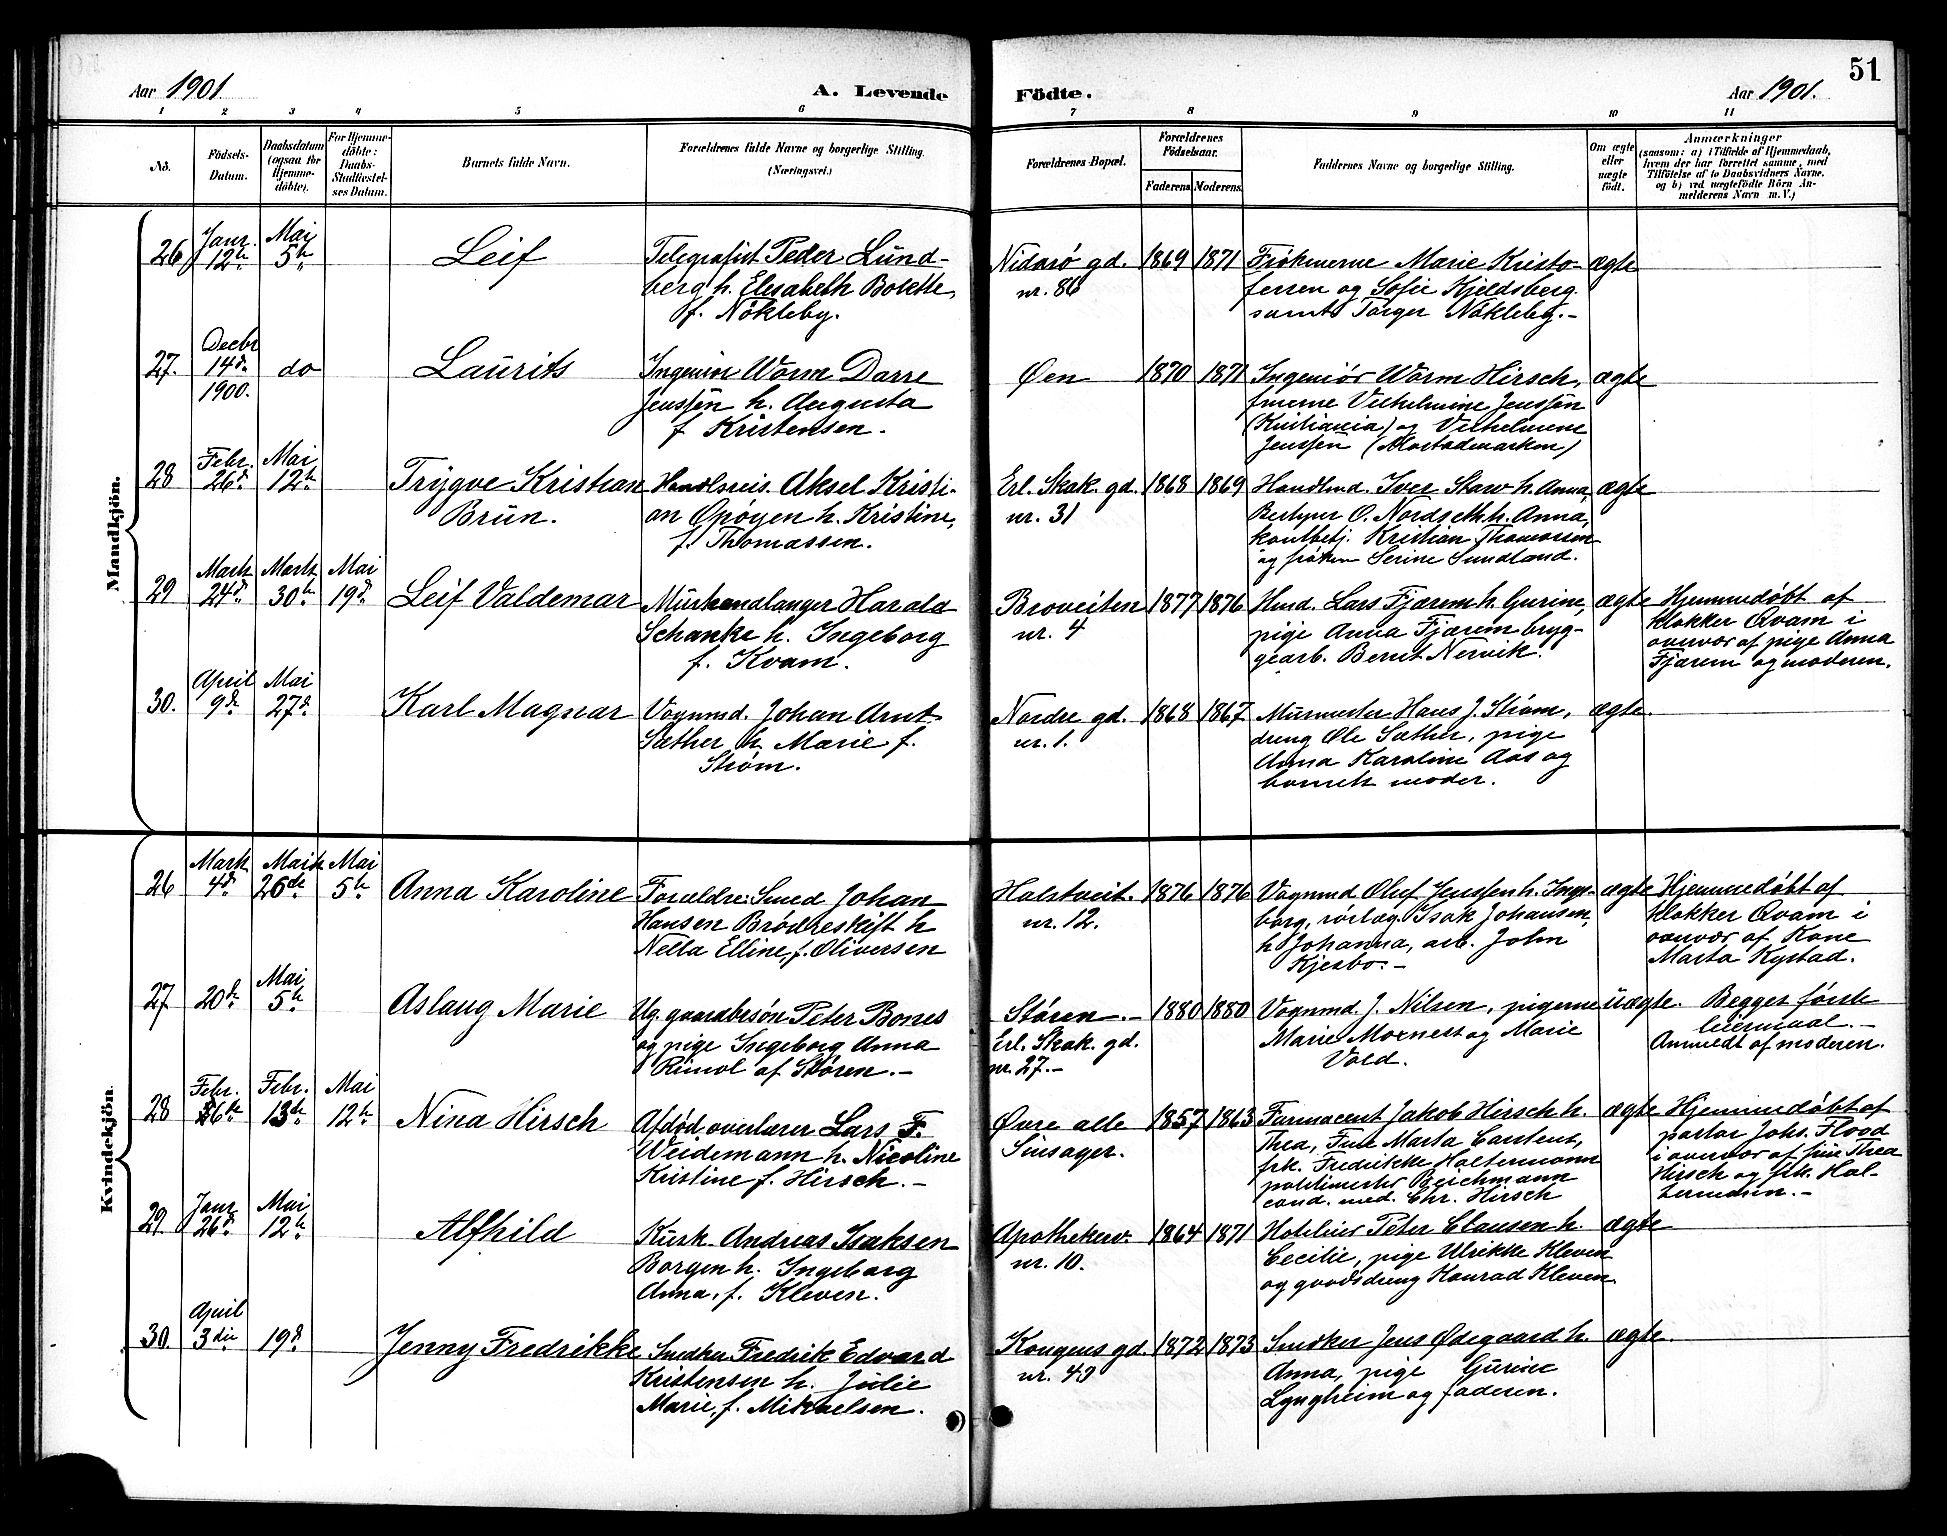 Aar 1901.
A. Levende
Födte.
Aar 1901.
51
1 2 3 4 5 6 7 8 9 10 11
No.
Födsels-
Datum.
Daabsdatum
(ogsaa for
Hjemme-
döbte).
For Hjemme-
döbte:
Daabs-
Stadfæstel-
ses Datum.
Barnets fulde Navn.
Forældrenes fulde Navne og borgerlige Stilling.
(Næringsvei.)
Forældrenes Bopæl.
Forældrenes
Födselsaar.
Faderens. Moderens.
Faddernes Navne og borgerlige Stilling.
Om ægte
eller
uægte
födt.
Anmærkninger
(saasom: a) i Tilfælde af Hjemmedaab,
hvem der har forrettet samme, med
Tilföielse af to Daabsvidners Navne.
og b) ved uægtefödte Börn An-
melderens Navn m. V.)
Mandkjön.
26
Janr.
12te
Mai
5te
Leif
Telegrafist Peder Lund-
berg h. Elesabeth Bolette,
f. Nökleby.
Nidarö gd.
nr. 86
1869
1871
Frøknerne Marie Kristo-
fersen og Sofie Kjeldsberg
samt Torger Nökleby.-
ægte
27.
Decbr
14de
1900.
do
Laurits
Ingeniør Worm Darre
Jenssen h. Augusta
f Kristensen.
Øen
1870
1871
Ingeniör Worm Hirsch,
fruerne Vilhelmine Jenssen
(Kristiania) og Vilhelmine
Jenssen (Mostadmarken)
ægte
28
Febr.
26de
Mai
12te
Trygve Kristian
Brun.
Handlsreis. Aksel Kristi-
an Opøyen h. Kristine,
f. Thomassen.
Erl. Skak. gd.
nr. 31
1868
1869
Handlmd. Iver Staw h. Anna,
Bestyrer O. Nordseth h. Anna,
kontbetj. Kristian Thomassen
og frøken Serine Sundland.
ægte
29
Marts
24de
Marts
30te
Mai
19de
Leif Valdemar
Murhandlanger Harald
Schanke h. Ingeborg
f. Kvam.
Broveiten
nr. 4
1877
1876
Hmd. Lars Fjærem h. Gurine,
pige Anna Fjærem bryg-
gearb. Bernt Nervik.
ægte
Hjemmedøbt af
klokker Qvam i
overvær af pige Anna
Fjærem og moderen.
30.
April
9de
Mai
27de
Karl Magnar
Vognmd. Johan Arnt
Sæther h. Marie f.
Strøm.
Nordre gd.
nr. 1.
1868
1867
Murmester Hans J. Strøm,
dreng Ole Sæther, pige
Anna Karoline Aas og
barnets moder.
ægte.
Kvindekjön.
26
Marts
4de
Marts
26de
Mai
5te
Anna Karoline
Forældre: Smed Johan
Hansen Brødreskift h
Nella Elline, f. Oliversen
Halstveit.
nr. 12.
1876
1876
Vognmd Oluf Jenssen h. Inge-
borg, rørlæg. Isak Johansen,
h Johanna, arb. John
Kjesbo.-
ægte
Hjemmedøbt af
klokker Qvam i
overvær af Kone
Marta Kystad.
27
20de
Mai
5te
Aslaug Marie
Ug. gaardbesøn Peter Bones
og pige Ingeborg Anna
Rimol af Støren.-
Støren.-
Erl. Skak. gd.
nr. 27.-
1880
1880
Vognmd. J. Nilsen, pigerne
Marie Moxnest og Marie
Vold.
uægte.
Begges første
leiermaal.-
Anmeldt af moderen.
28
Febr.
Febr.
13de
Mai
12te
Nina Hirsch
Afdød overlærer Lars F.
Weidemann h. Nicoline
Kristine f. Hirsch.-
Øvre alle
Sinsager.
1857
1863
Farmaceut Jakob Hirsch h.
Thea, Frue Marta Carstens,
frk. Fredrikke Haltermann
politimester Reichmann
cand. med. Chr. Hirsch
ægte
Hjemmedøbt af
pastor Johs. Flood
i overvær af frue Thea
Hirsch og frk. Hal-
termann.-
29
Janr
26de
Mai
12te
Alfhild
Kusk Andreas Isaksen
Borgen h. Ingeborg
Anna, f. Kleven.
Apothekerv.
nr. 10.
1864
1871
Hoteleier Peter Clausen h.
Cecilie, pige Ulrikke Kleven
og gaardsdreng Konrad Kleven.
ægte
30.
April
3die
19de
Jenny Fredrikke
Snedker Fredrik Edvard
Kristensen h. Julie
Marie, f. Mikaelsen.
Kongens gd.
nr. 49
1872
1873
Snedker Jens Ødegaard h.
Anna, pige Gurine
Lyngheim og faderen.
ægte.